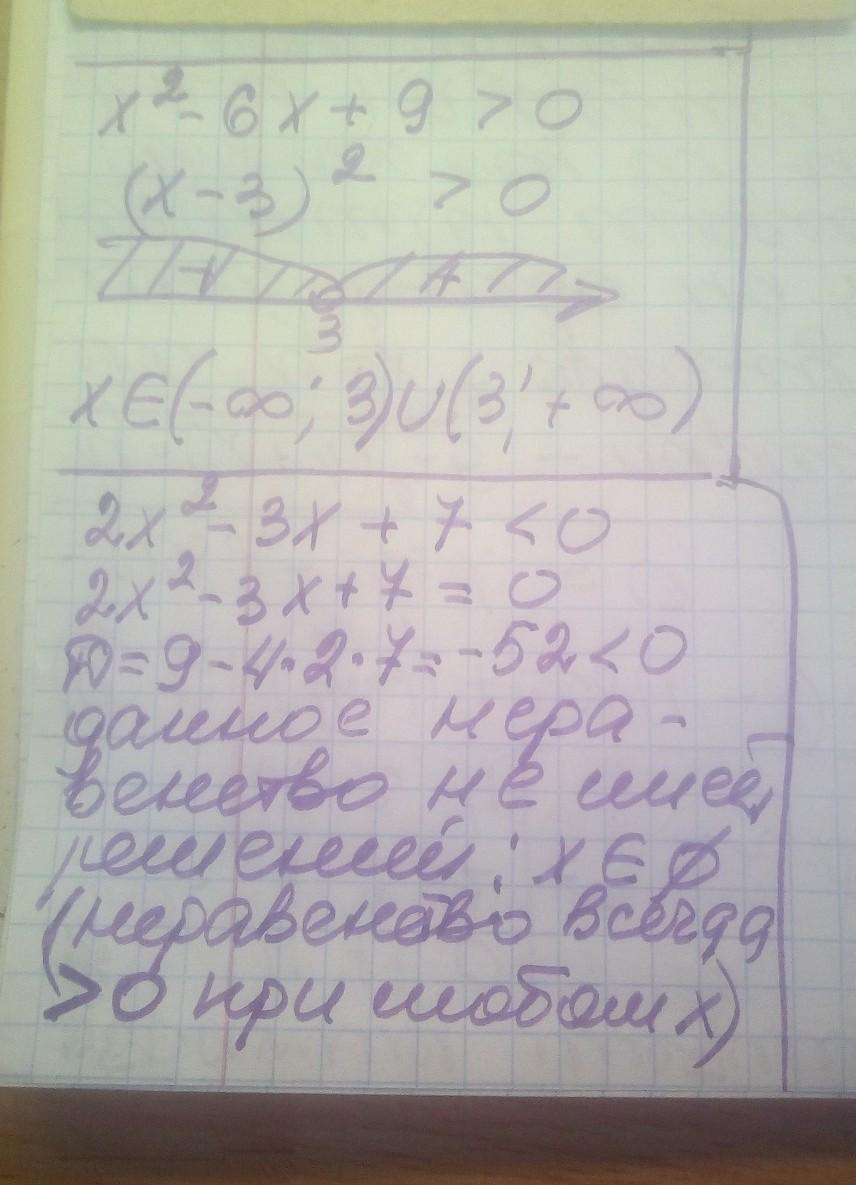 x² - 6x + 9 > 0
(x - 3)² > 0
+ +
3
x ∈ (-∞; 3) ∪ (3; +∞)
2x² - 3x + 7 < 0
2x² - 3x + 7 = 0
D = 9 - 4·2·7 = -52 < 0
данное нера-
венство не имеет
решений: x ∈ ∅
(неравенство всегда
> 0 при любом x)